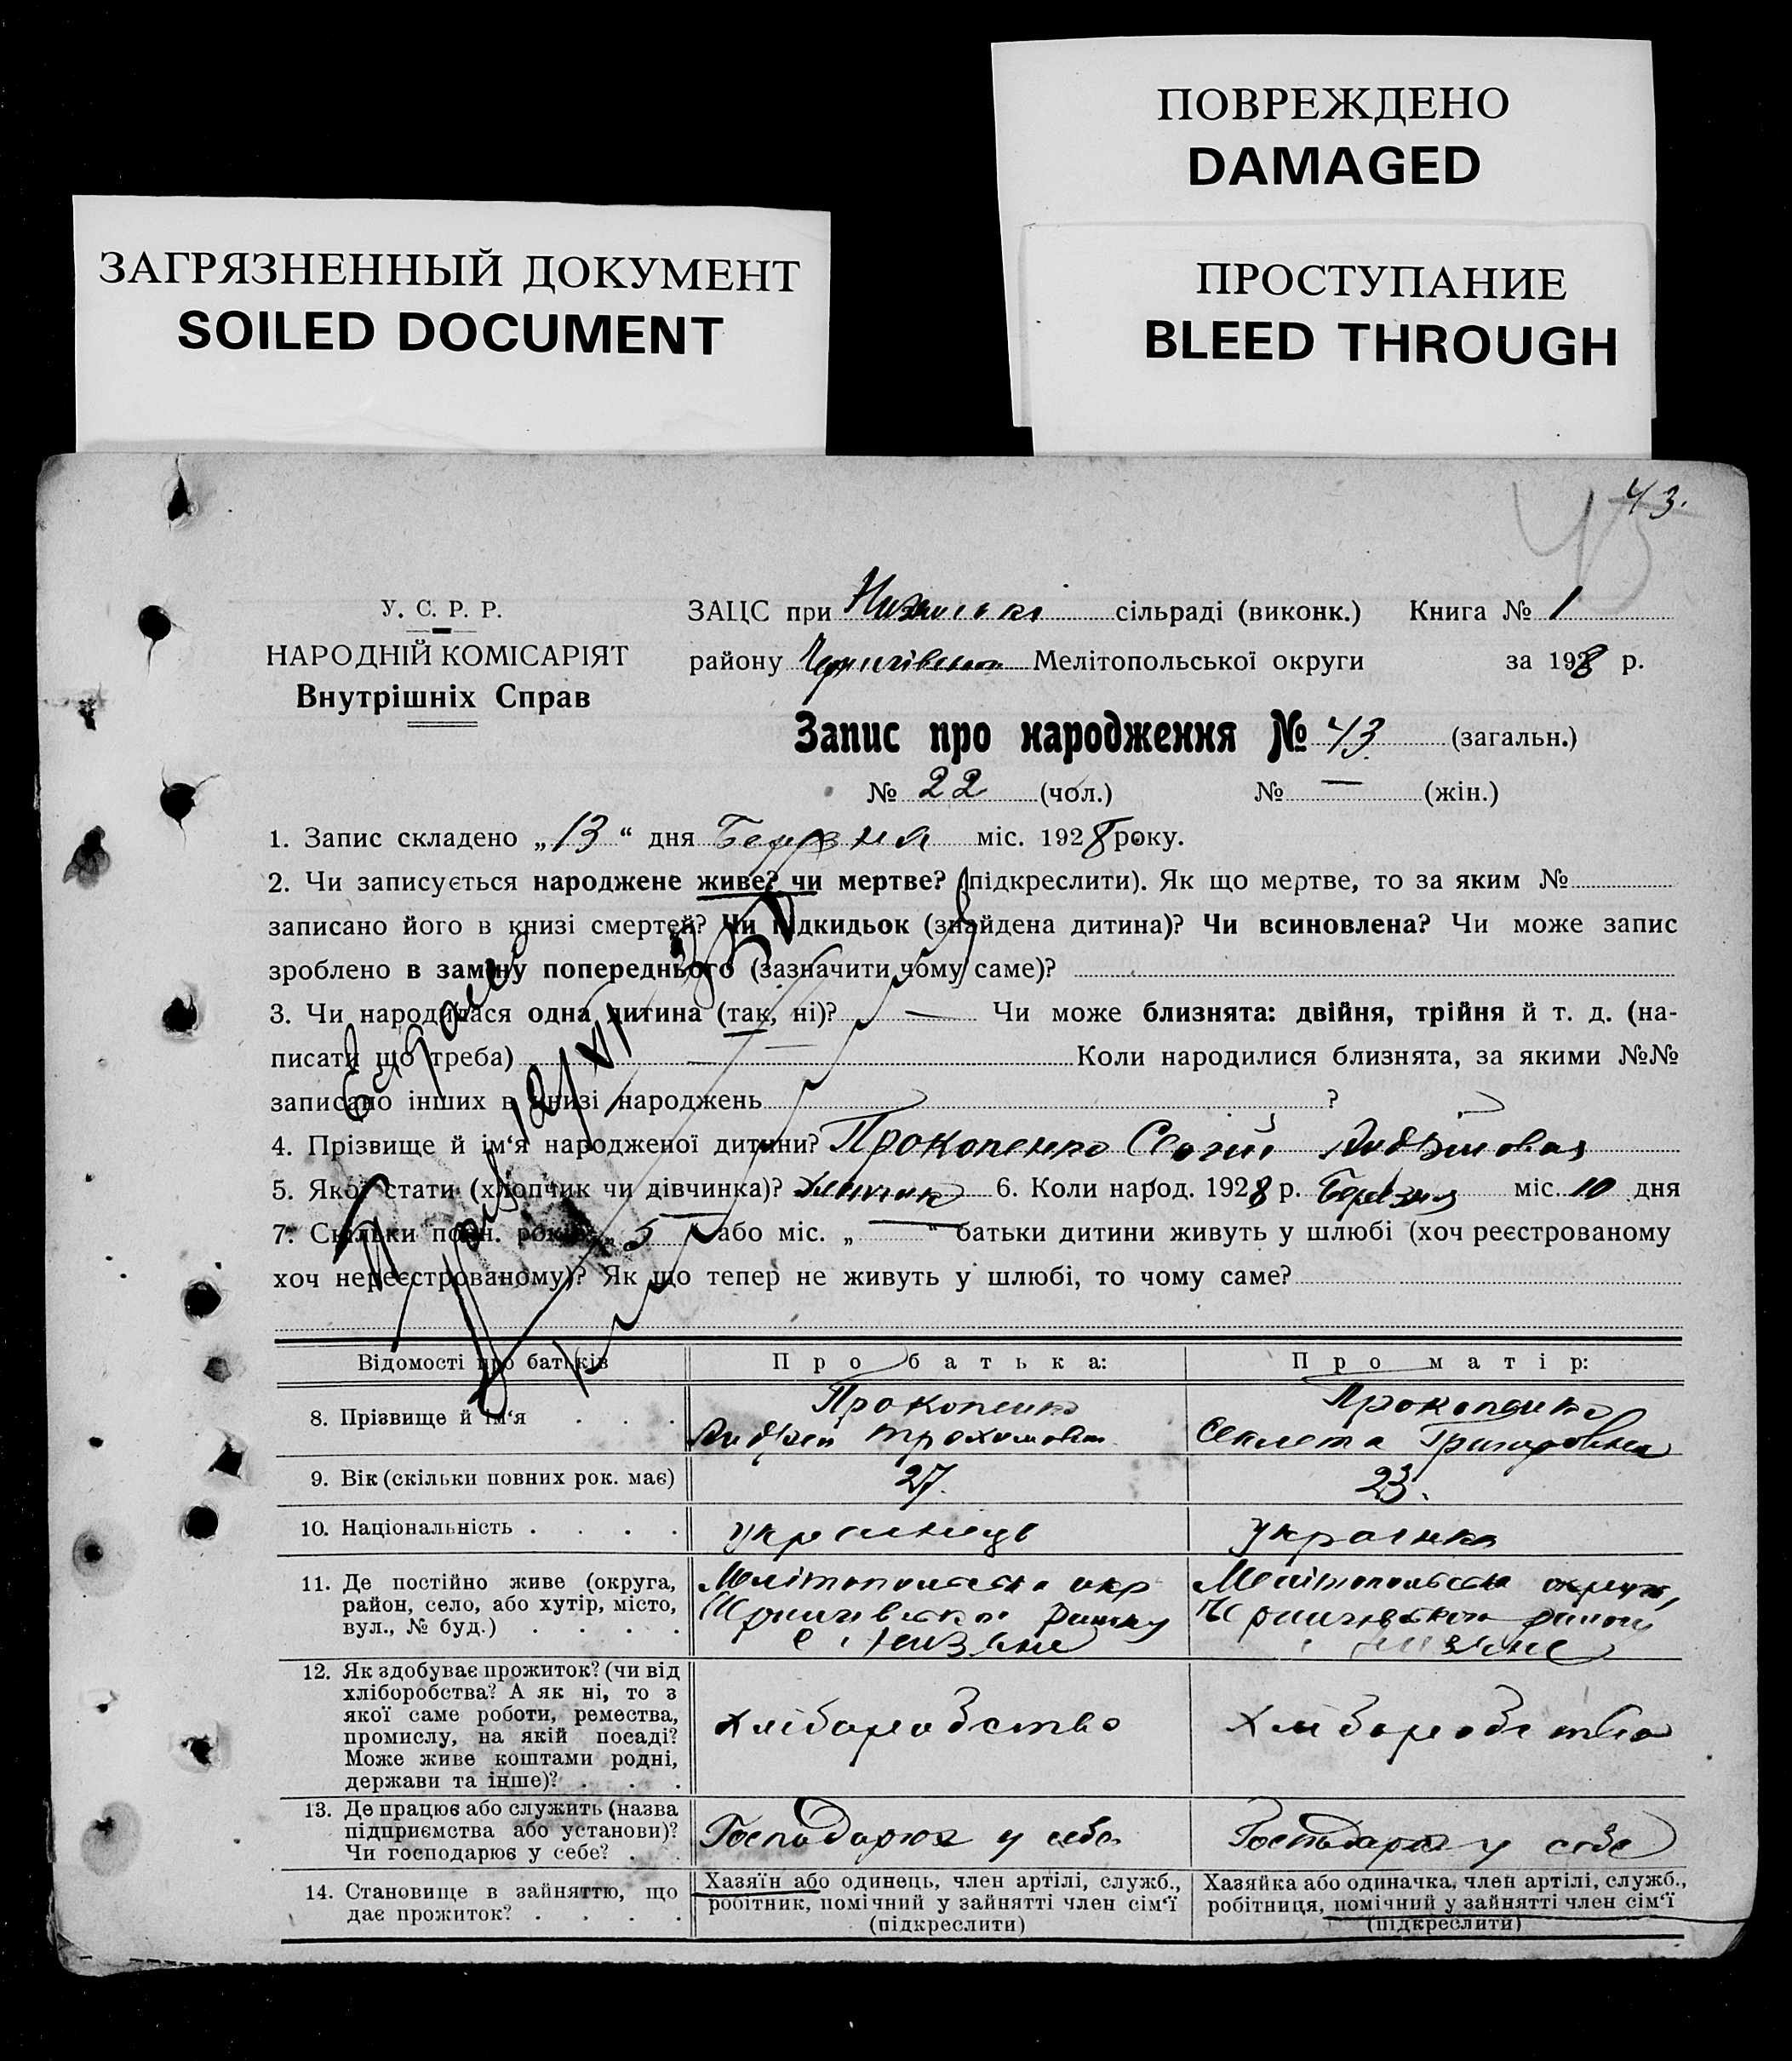 ПОВРЕЖДЕНО
DAMAGED
ЗАГРЯЗНЕННЫЙ ДОКУМЕНТ
SOILED DOCUMENT
ПРОСТУПАНИЕ
BLEED THROUGH
43.
43
У. С. Р. Р.
НАРОДНІЙ КОМІСАРІЯТ
Внутрішніх Справ
ЗАЦС при сільраді (виконк.) Книга № 1
району Мелітопольської округи за 1928 р.
Запис про народження № 43. (загальн.)
№ 22 (чол.) № — (жін.)
1. Запис складено „13“ дня Березня міс. 1928 року.
2. Чи записується народжене живе? чи мертве? (підкреслити). Як що мертве, то за яким №
записано його в книзі смертей? Чи підкидьок (знайдена дитина)? Чи всиновлена? Чи може запис
зроблено в заміну попереднього (зазначити чому саме)?
3. Чи народилася одна дитина (так, ні)? — Чи може близнята: двійня, трійня й т. д. (на-
писати що треба) — Коли народилися близнята, за якими №№
записано інших в книзі народжень ?
4. Прізвище й ім‘я народженої дитини? Прокопенко Сергій
5. Якої стати (хлопчик чи дівчинка)? хлопчик 6. Коли народ. 1928 р. Березня міс. 10 дня
7. Скільки повн. років „ 5 або міс. „ — “ батьки дитини живуть у шлюбі (хоч реєстрованому
хоч нереєстрованому)? Як що тепер не живуть у шлюбі, то чому саме?
Відомості про батьків
Про батька:
Про матір:
8. Прізвище й ім‘я . . .
Прокопенко
Андрей Трохимович
Прокопенко
Секлета Григоровна
9. Вік (скільки повних рок. має)
27.
23.
10. Національність . . . .
українець
українка
11. Де постійно живе (округа,
район, село, або хутір, місто,
вул., № буд.) . . . .
Мелітопольська окр
району
с.
Мелітопольська округа,
12. Як здобуває прожиток? (чи від
хліборобства? А як ні, то з
якої саме роботи, ремества,
промислу, на якій посаді?
Може живе коштами родні,
держави та інше)? . . .
хліборобство
хліборобство
13. Де працює або служить (назва
підприємства або установи)?
Чи господарює у себе? . .
Господарює у себе
Господарює у себе
14. Становище в зайняттю, що
дає прожиток? . . . .
Хазяїн або одинець, член артілі, служб.,
робітник, помічний у зайнятті член сім‘ї
(підкреслити)
Хазяйка або одиначка, член артілі, служб.,
робітниця, помічний у зайнятті член сім‘ї
(підкреслити)